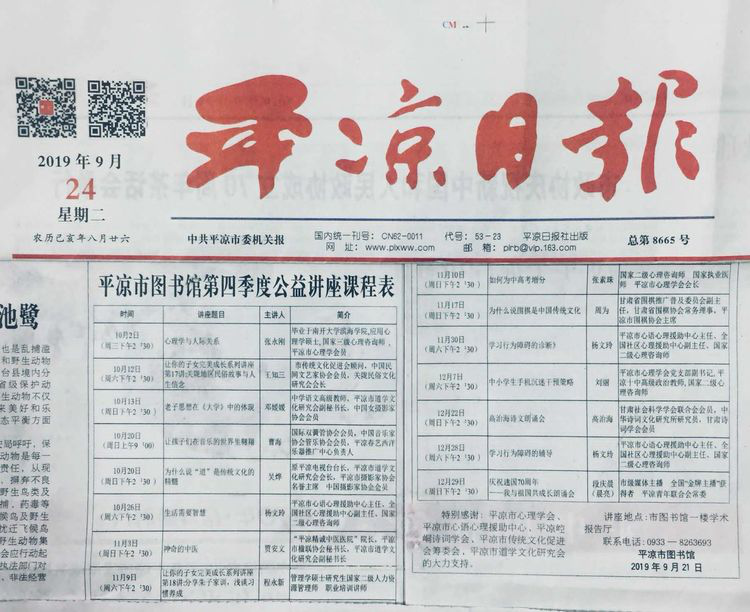 CM
平凉日报
2019年9月
24
星期二
农历己亥年八月廿六
中共平凉市委机关报
国内统一刊号：CN62-0011 代号：53-23 平凉日报社出版
网址：www.plxww.com 邮箱：plrb@vip.163.com
总第8665号
池鹭
平凉市图书馆第四季度公益讲座课程表
时间 讲座题目 主讲人 简介
10月2日
(周三下午2:30)
心理学与人际关系
张永刚
毕业于南开大学滨海学院,应用心
理学硕士,国家三级心理咨询师、
平凉市心理学会会员
10月12日
(周六下午2:30)
让你的子女完美成长系列讲座
第17讲:关陇地区民俗故事与人
生信念
王知三
市传统文化促进会顾问，中国民
间文艺家协会会员，关陇民俗文化
研究会会长
10月13日
(周日下午2:30)
老子思想在《大学》中的体现
邓媛媛
中学语文高级教师，平凉市道学文
化研究会副秘书长，中国女摄影家
协会会员
10月20日
(周日上午9:00)
让孩子们在音乐的世界里翱翔
曹海
国际双簧管协会会员、中国音乐家
协会管乐协会会员、平凉春艺西洋
乐器推广中心负责人
10月20日
(周日下午2:30)
为什么说“道”是传统文化的
精髓
吴烨
原平凉电视台台长，平凉市道学文
化研究会会长，平凉市摄影家协会
名誉主席 中国摄影家协会会员
10月26日
(周六下午2:30)
生活需要智慧
杨文玲
平凉市心语心理援助中心主任、全
国社区心理援助中心副主任、国家
二级心理咨询师
11月3日
(周日下午2:30)
神奇的中医
贾安文
“平凉精诚中医医院”院长，平凉
市楹联协会秘书长，平凉市道学文
化研究会副秘书长
11月9日
(周六下午2:30)
让你的子女完美成长系列讲座
第18讲:分享朱子家训，浅谈习
惯养成
程永新
管理学硕士研究生国家二级人力资
源管理师 职业培训讲师
11月10日
(周日下午2:30)
如何为中高考增分
张素珠
国家二级心理咨询师 国家执业医
师 平凉市心理学会会长
11月17日
(周日下午2:30)
为什么说围棋是中国传统文化
周为
甘肃省围棋推广普及委员会副主
任，甘肃省围棋协会常务理事，平
凉市围棋协会主席
11月30日
(周六下午2:30)
学习行为障碍的诊断
杨文玲
平凉市心语心理援助中心主任、全
国社区心理援助中心副主任、国家
二级心理咨询师
12月7日
(周六下午2:30)
中小学生手机沉迷干预策略
刘丽
平凉市心理学会党支部副书记,平
凉十中高级政治教师,国家二级心
理咨询师
12月22日
(周日下午2:30)
高治海诗文朗诵会
高治海
甘肃社会科学学会联合会会员，中
华诗词文化研究所研究员，甘肃诗
词学会会员
12月28日
(周六下午2:30)
学习行为障碍的辅导
杨文玲
平凉市心语心理援助中心主任、全
国社区心理援助中心副主任、国家
二级心理咨询师
12月29日
(周日下午2:30)
庆祝建国70周年
——我与祖国共成长朗诵会
段庆晨
(晨亮)
市级媒体主播 全国“金牌主播”获
得者 平凉青年联合会常委
特别感谢：平凉市心理学会、
平凉市心语心理援助中心、平凉崆
峒诗词学会、平凉市传统文化促进
会筹委会，平凉市道学文化研究会
的大力支持。
讲座地点：市图书馆一楼学术
报告厅
联系电话：0933—8263693
平凉市图书馆
2019年9月21日
也是乱捕滥
和野生动物
台县境内分
省级保护动
生动物不仅
来美好和乐
态平衡方面
安局呼吁，保
动物是每一
责任，从现
摒弃不良
野生鸟类及
捕、药毒等
候鸟及野生
扰迁飞候鸟
野生动物集
会应行动起
执法部门对
、非法经营